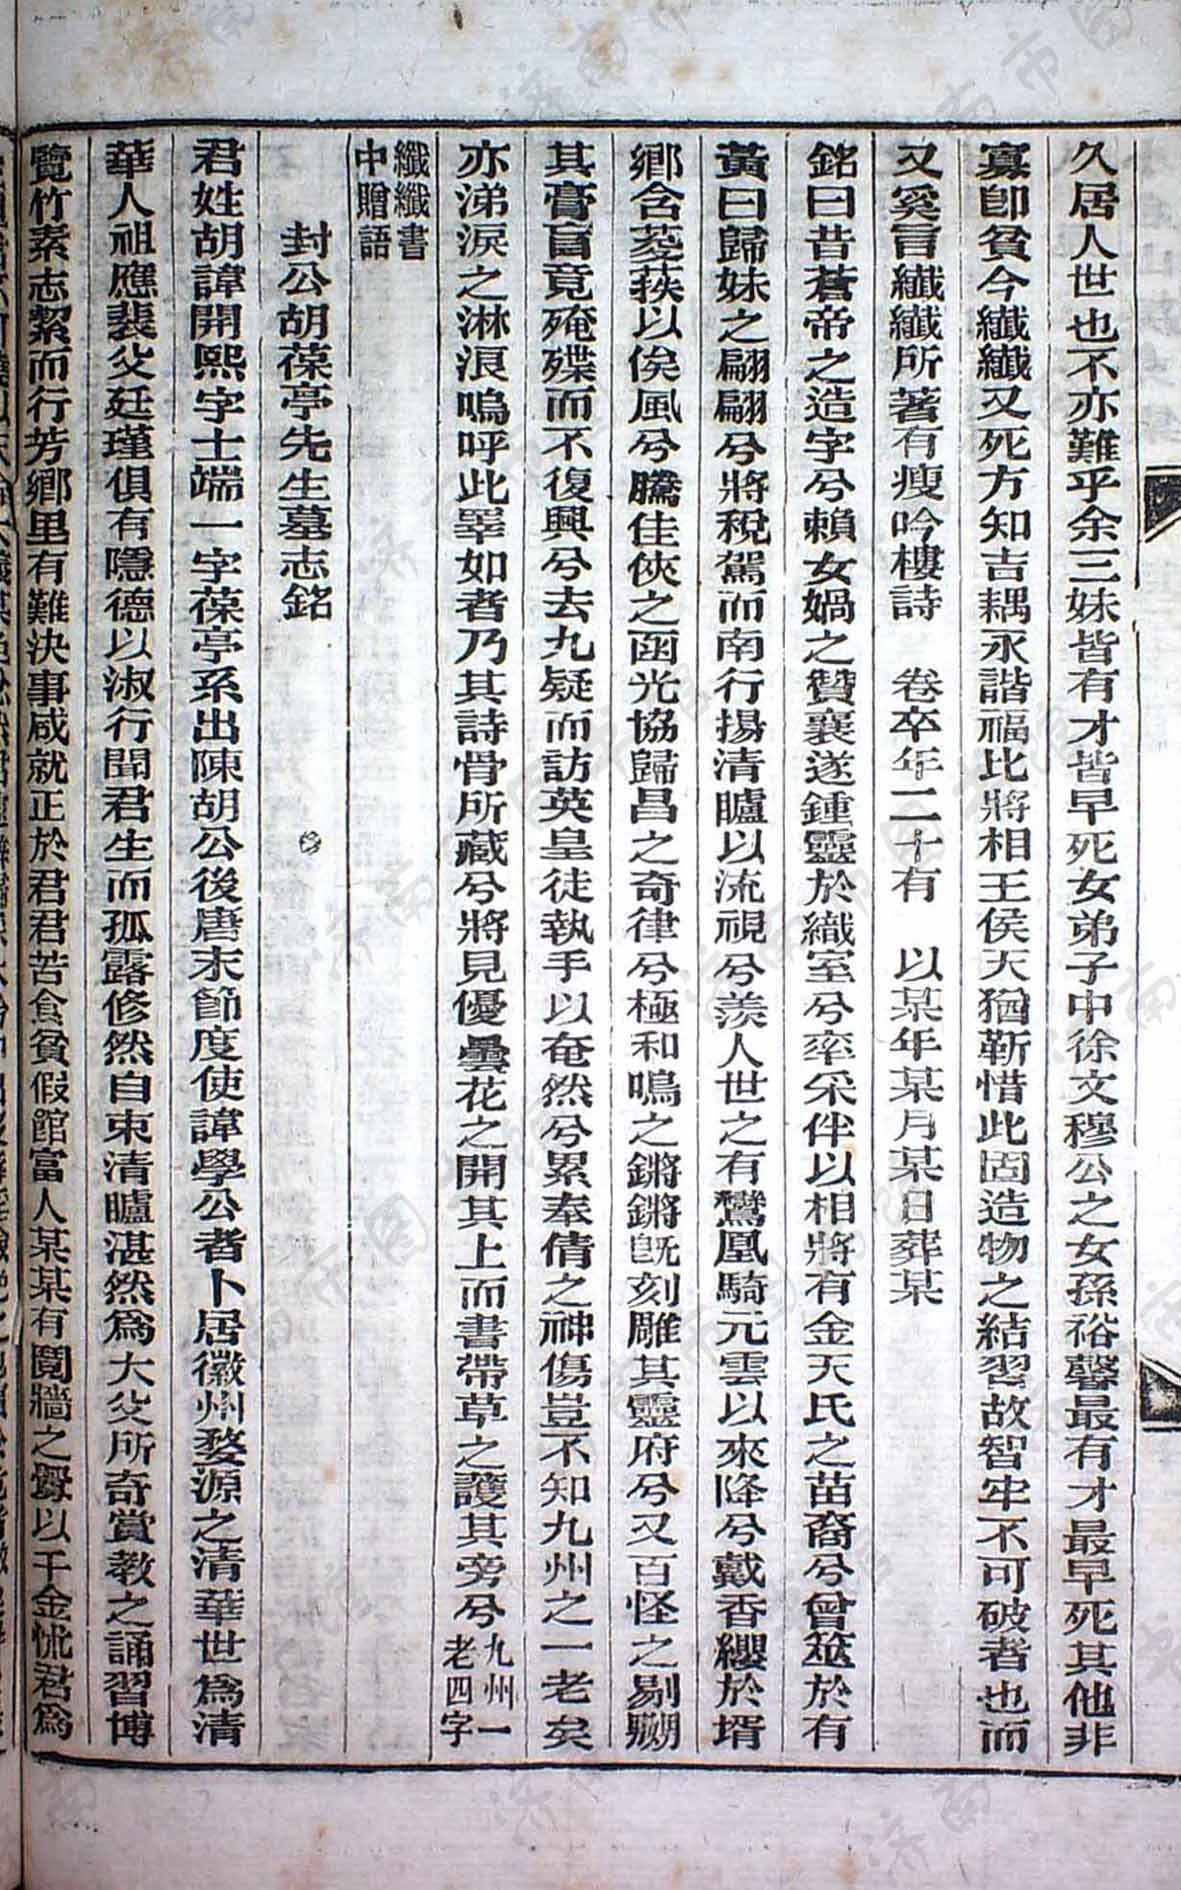 久居人世也不亦難乎余三妹皆有才皆早死女弟子中徐文穆公之女孫裕馨最有才最早死其他非
寡卽貧今纖纖又死方知吉耦永諧福比將相王侯天猶靳惜此固造物之結習故智牢不可破者也而
又奚言纖纖所著有瘦吟樓詩　卷卒年二十有　以某年某月某日葬某
銘曰昔蒼帝之造字兮賴女媧之贊襄遂鍾靈於織室兮率采伴以相將有金天氏之苗裔兮曾筮於有
黃曰歸妹之翩翩兮將稅駕而南行揚清矑以流視兮羨人世之有鸞凰騎元雲以來降兮戴香纓於壻
鄉含菱蕍以俟風兮騰佳俠之函光協歸昌之奇律兮極和鳴之鏘鏘旣刻雕其靈府兮又百怪之剔
其膏肓竟殗殜而不復興兮去九疑而訪英皇徒執手以奄然兮累奉倩之神傷豈不知九州之一老矣
亦涕淚之淋浪嗚呼此睪如者乃其詩骨所藏兮將見優曇花之開其上而書帶草之護其旁兮九州一老四字
纖纖書中贈語
封公胡葆亭先生墓志銘
君姓胡諱開熙字士端一字葆亭系出陳胡公後唐末節度使諱學公者卜居徽州婺源之清華世爲清
華人祖應裴父廷瑾俱有隱德以淑行聞君生而孤露修然自束清矑湛然爲大父所奇賞教之誦習博
覽竹素志絜而行芳鄉里有難決事咸就正於君君苦食貧假館富人某某有鬩牆之釁以千金怵君爲